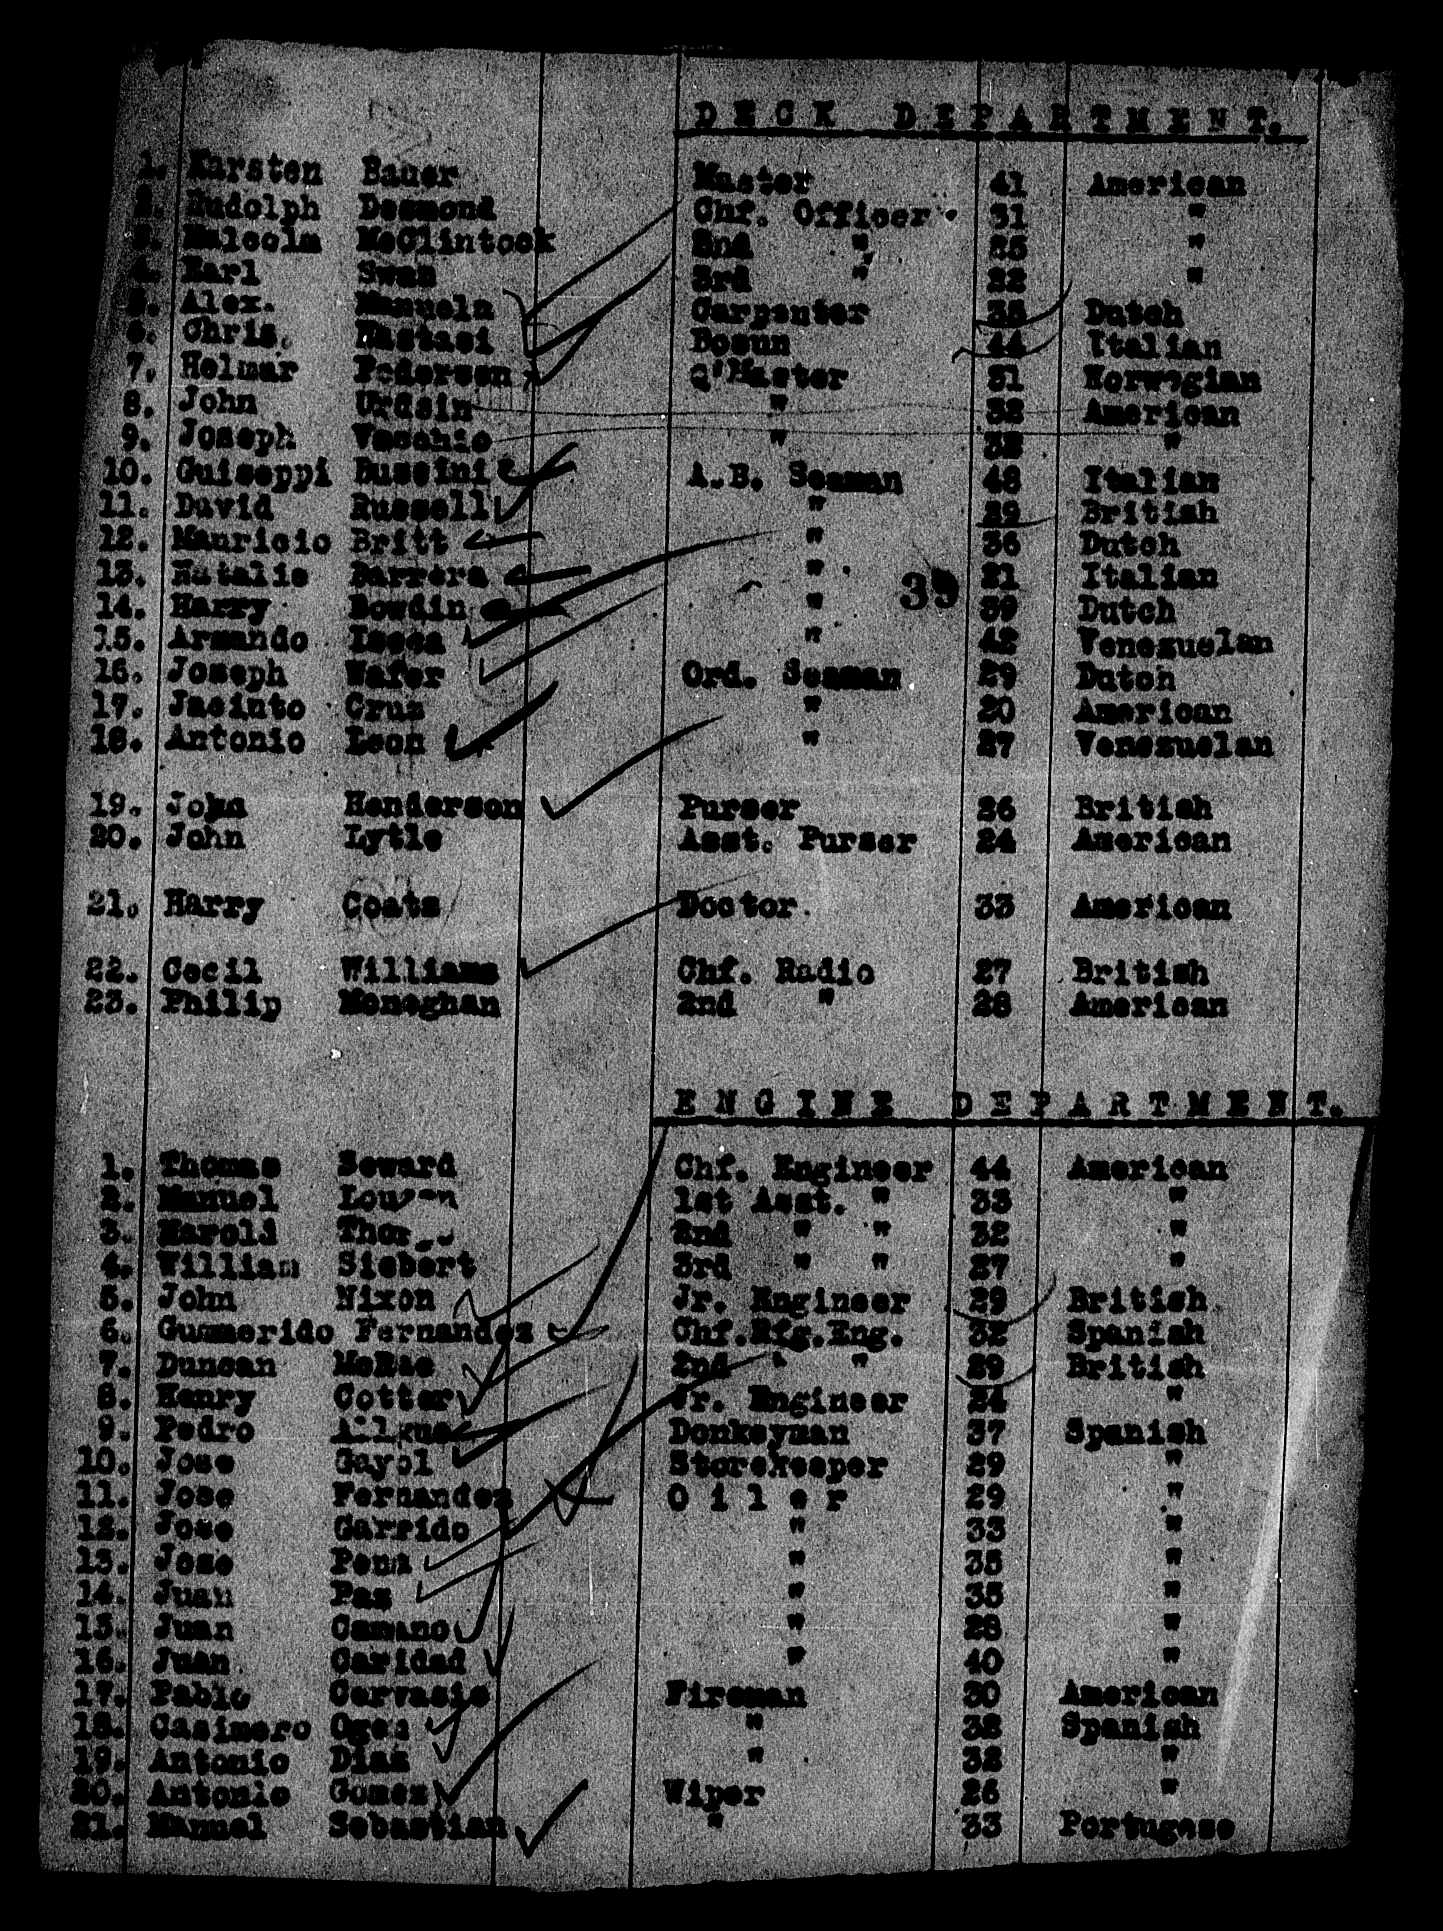 DECK DEPARTMENT.
1. Karsten Bauer Master 41 American
2. Rudolph Desmond Chf. Officer 31 "
3. Malcolm McClintock 2nd " 25 "
4. Earl Swan 3rd " 22 "
5. Alex. Manuela Carpenter 35 Dutch
6. Chris. Nastasi Bosun 44 Italian
7. Helmar Pedersen Q'Master 31 Norwegian
8. John Urdsin " 32 American
9. Joseph Vecchio " 32 "
10. Guiseppi Bussini A.B. Seaman 48 Italian
11. Duvid Russell " 29 British
12. Mauricio Britt " 36 Dutch
13. Natalie Barrera " 21 Italian
39
14. Harry Bowdin " 39 Dutch
15. Armando Lecca " 42 Venezuelan
16. Joseph Wafer Ord. Seaman 29 Dutch
17. Jacinto Cruz " 20 American
18. Antonio Leon " 27 Venezuelan
19. John Henderson Purser 26 British
20. John Lytle Asst. Purser 24 American
21. Harry Coats Doctor 33 American
22. Cecil Williams Chf. Radio 27 British
23. Philip Moneghan 2nd " 28 American
ENGINE DEPARTMENT.
1. Thomas Seward Chf. Engineer 44 American
2. Manuel 1st Asst. " 33 "
3. Harold 2nd " " 32 "
4. William Siebert 3rd " " 27 "
5. John Nixon Jr. Engineer 29 British
6. Gummerido Fernandez Chf.Rfg.Eng. 32 Spanish
7. Duncan McRae 2nd " " 29 British
8. Henry Cotter Jr. Engineer 24 "
9. Pedro Donkeyman 37 Spanish
10. Jose Gayol Storekeeper 29 "
11. Jose Fernandez Oiler 29 "
12. Jose Garrido " 33 "
13. Jose Pena " 35 "
14. Juan Paz " 35 "
15. Juan Camano " 28 "
16. Juan Caridad " 40 "
17. Pablo Gervasio Fireman 30 American
18. Casimero Ogea " 38 Spanish
19. Antonio Dias " 32 "
20. Antonio Gomez Wiper 26 "
21. Manuel Sebastian " 33 Portugese